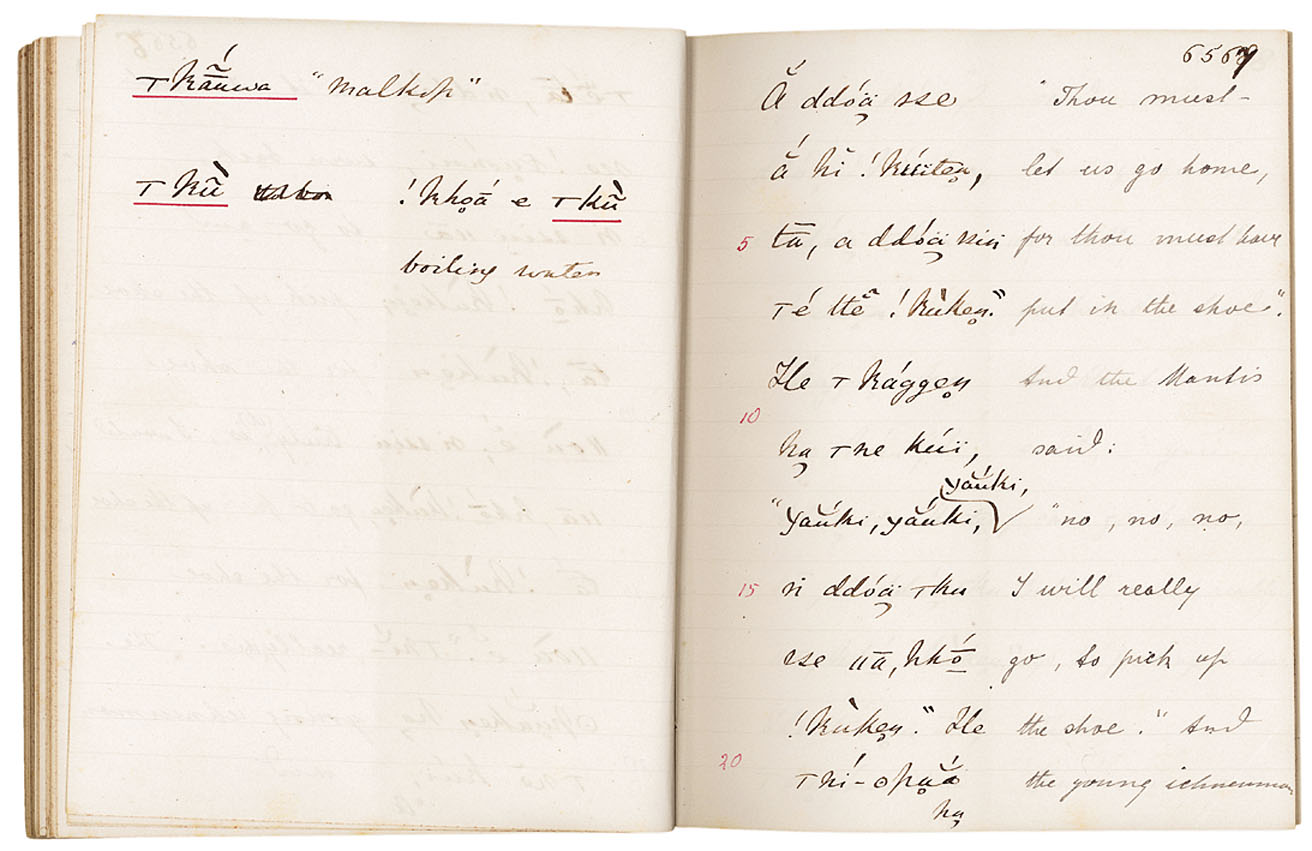 ⊤kắ̄ūwa "malkop"
⊤kũ̀ !khoá̄ e ⊤kũ̀
boiling water
6567
Ắ ddóä sse "Thou must-
ắ hĭ !kúïten̥, let us go home,
5 tā, a ddóä ssiṅ for thou must have
⊤é ttĕ̃ !kùken̥." put in the shoe".
Ile ⊤kággen̥ And the Mantis
10
ha̤ ⊤ne kúï, said:
yaúki,
"yaúki, yaúki, "no, no, no,
15 n̄ ddóä ⊤ku I will really
sse ııā, hhó̄ go, to pick up
!kùken̥." Ile the shoe." And
20 ⊤ní-opu̥ắ the young ichneumon
ha̤